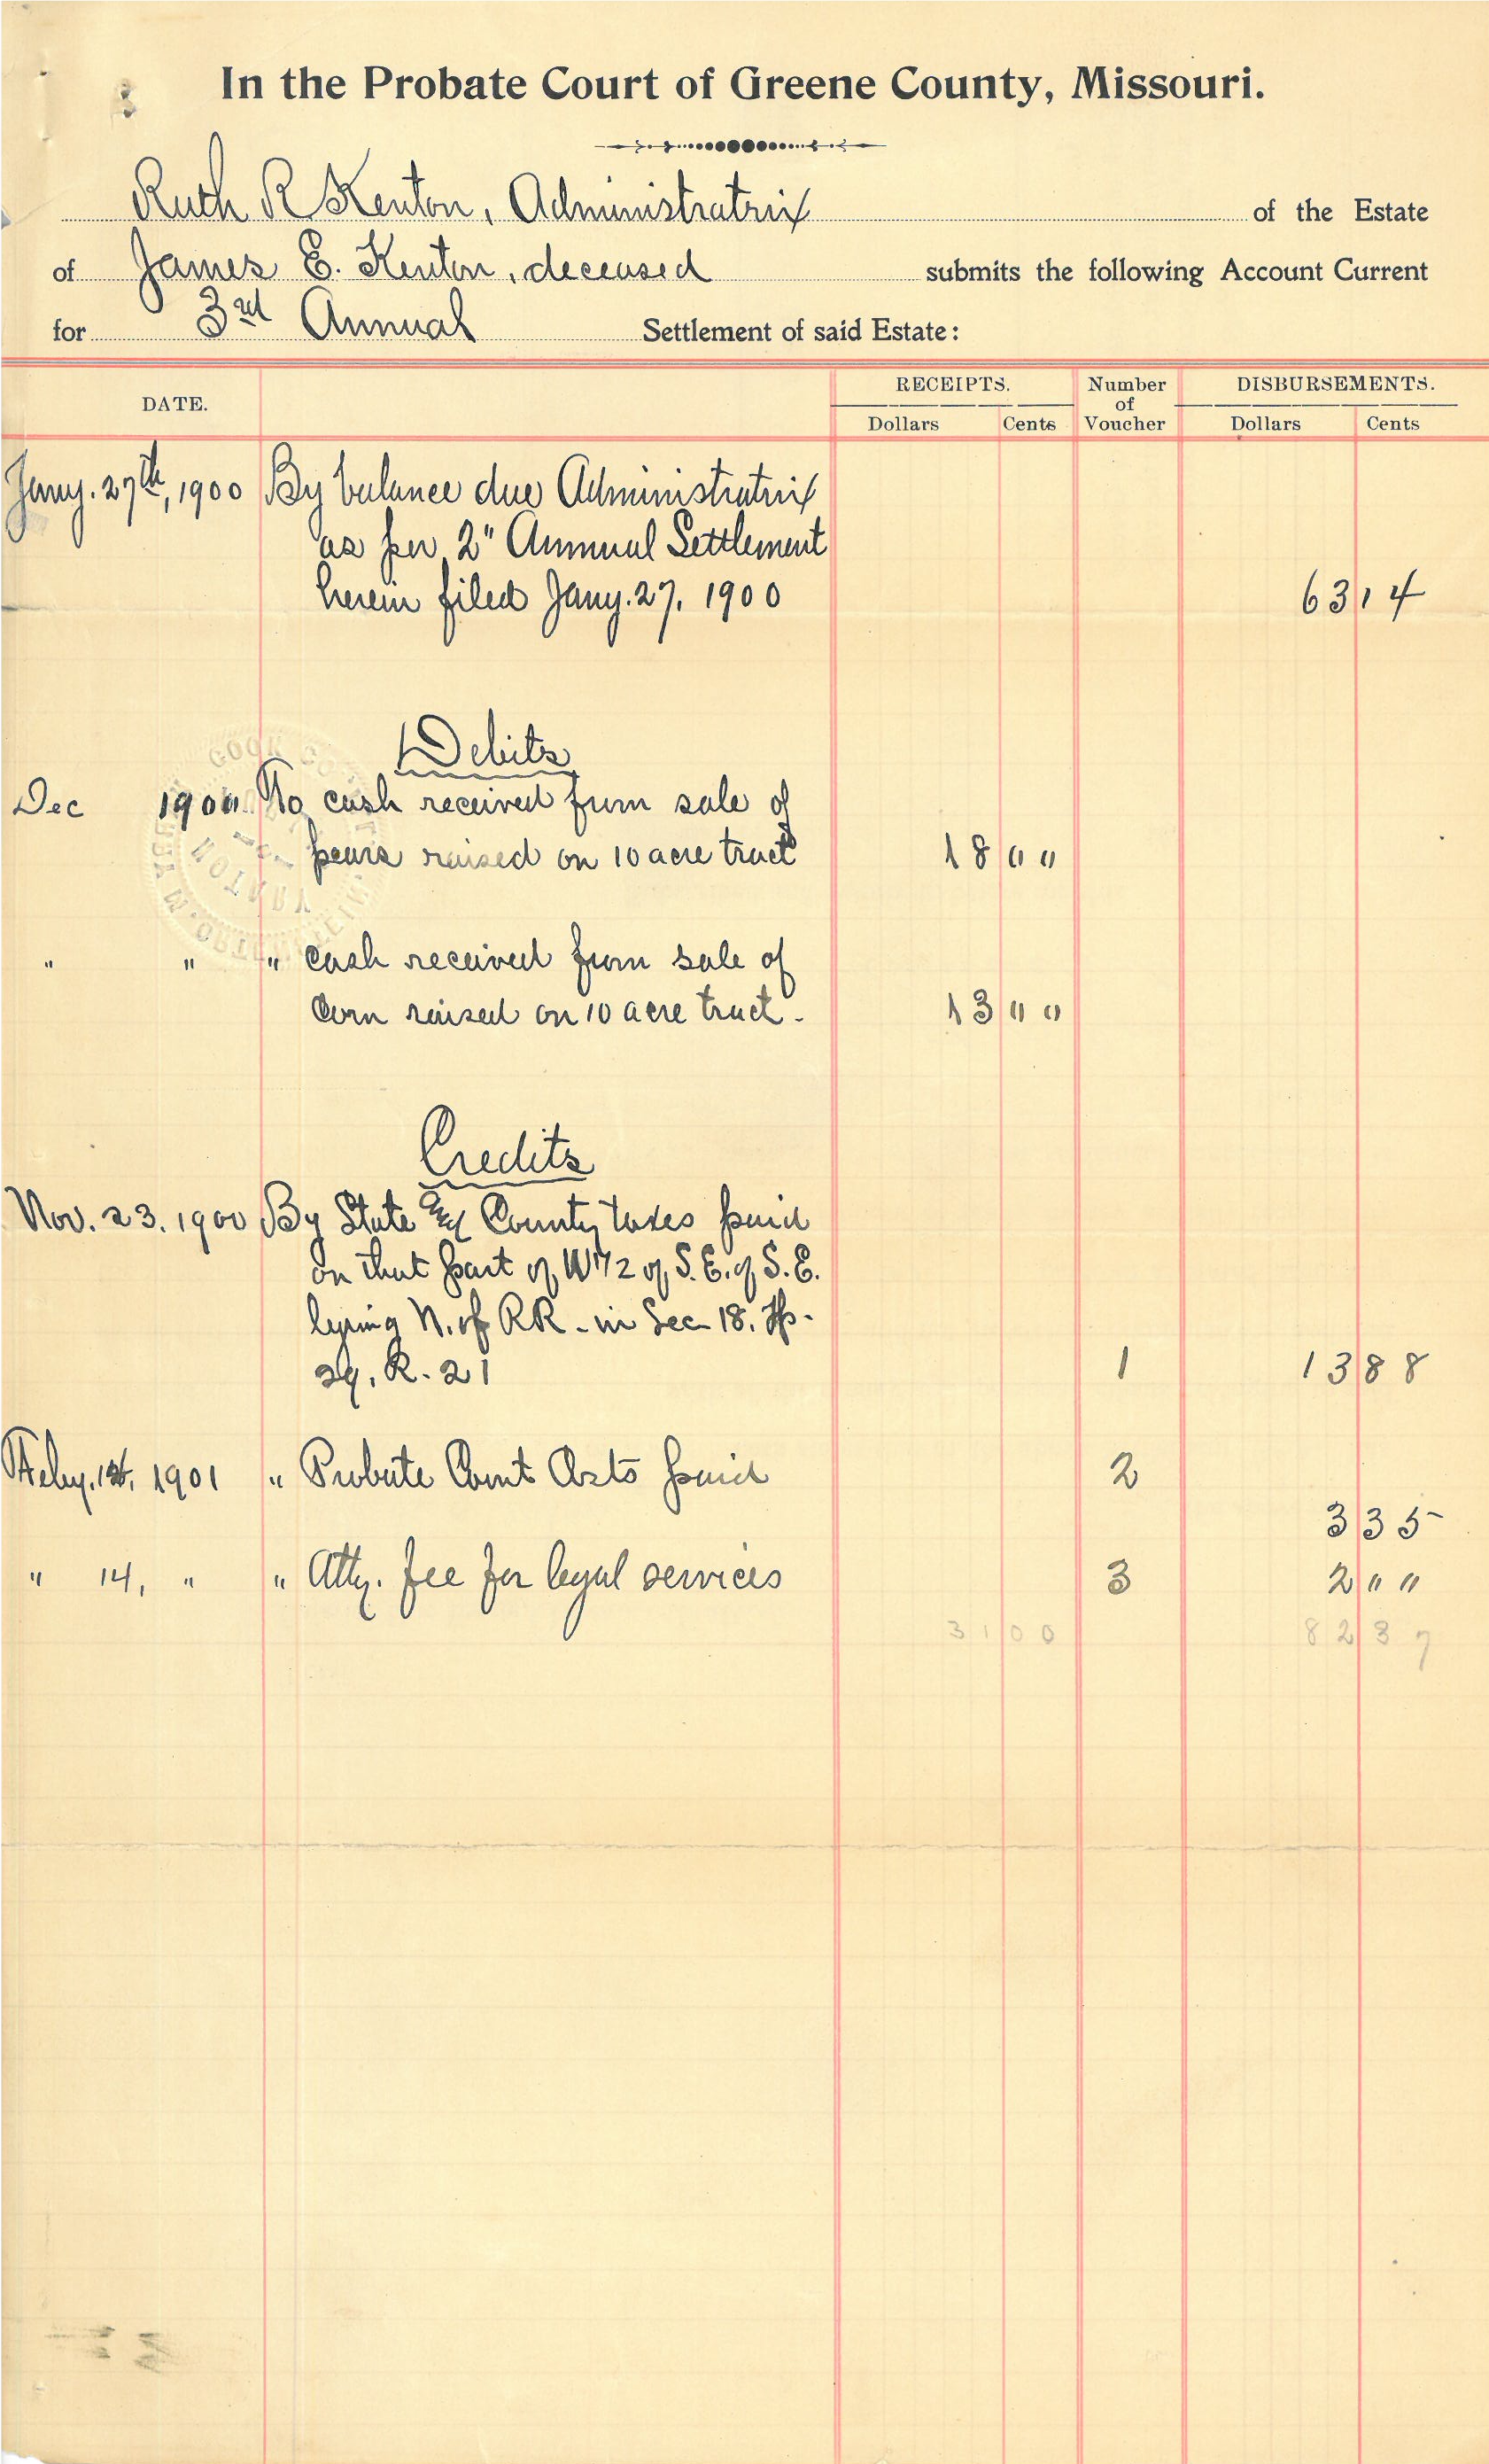 In the Probate Court of Greene County, Missouri.
Ruth R Kenton, Administratrix of the Estate
of James E. Kenton, deceased submits the following Account Current
for 3rd Annual Settlement of said Estate:
DATE. RECEIPTS. Number of Voucher DISBURSEMENTS.
Dollars Cents Dollars Cents
Jany. 27th, 1900 By balance due Administratrix
as per 2" Annual Settlement
herein filed Jany. 27, 1900 63 14
Debits
Dec 1900 To cash received from sale of
pears raised on 10 acre tract 18 00
" " " cash received from sale of
Corn raised on 10 acre tract. 13 00
Credits
Nov. 23. 1900 By State and County taxes paid
on that part of W 1/2 of S. E. of S. E.
lying N. of RR. in Sec 18. Tp.
29, R. 21 1 13 88
Feby. 1st, 1901 " Probate Court Costs paid 2
3 35
" 14, " " Atty. fee for legal services 3 2 " "
31 00 82 37